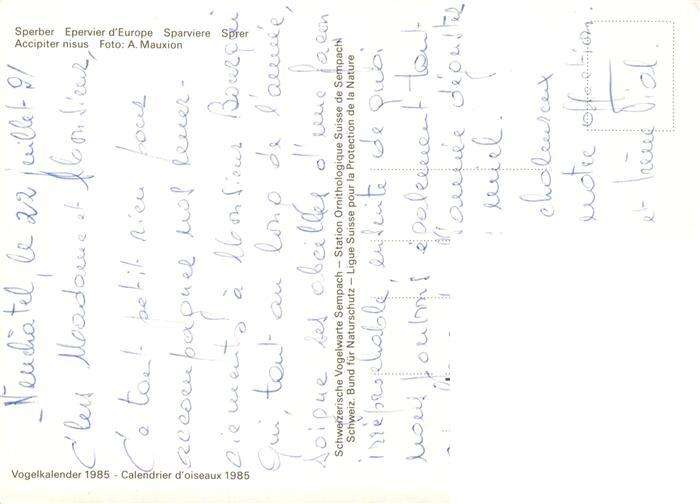 Sperber Epervier d'Europe Sparviere Sprer
Accipiter nisus Foto: A. Mauxion
Neuchâtel, le 22 juillet 91
Chers Madame et Monsieur,
Ce tout petit rien pour
accompagner nos remer-
ciements à Monsieur Bourqui
qui, tout au long de l'année,
soigne ses abeilles d'une façon
irréprochable, ensuite de quoi
nous pouvons également tout
l'année déguster
miel.
chaleureux
notre affection.
et Irène Vial.
Schweizerische Vogelwarte Sempach – Station Ornithologique Suisse de Sempach
Schweiz. Bund für Naturschutz – Ligue Suisse pour la Protection de la Nature
Vogelkalender 1985 - Calendrier d'oiseaux 1985